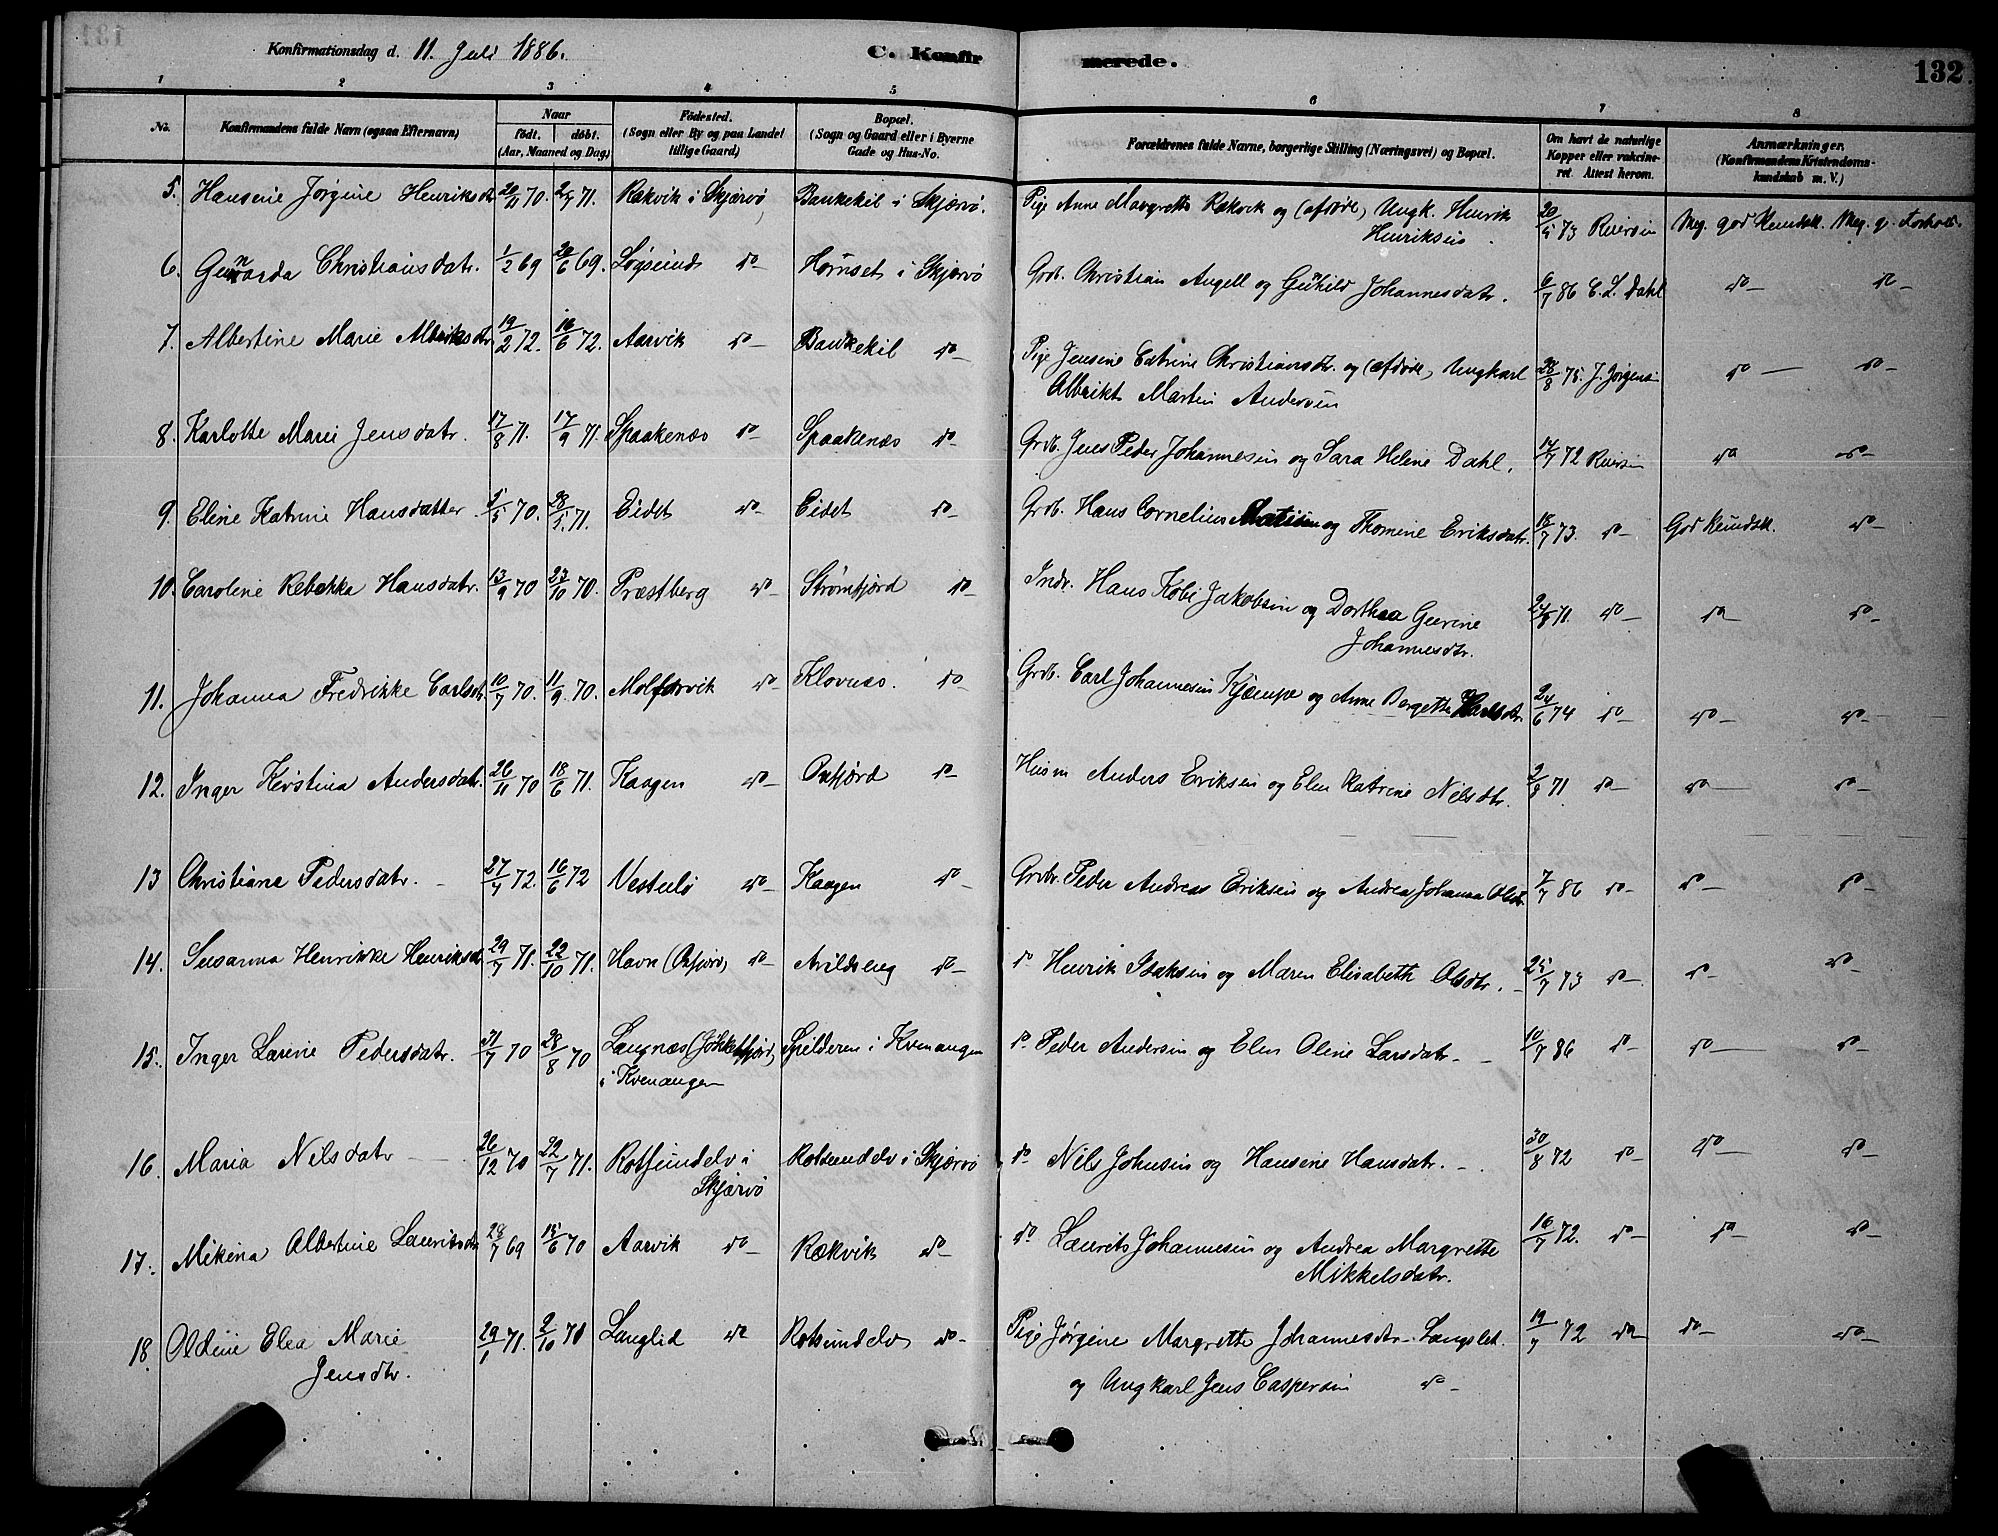 Konfirmationsdag d. 11. Juli 1886.
C. Konfirmerede.
132
1 2 3 4 5 6 7 8
No.
Konfirmandens fulde Navn (ogsaa Efternavn)
Naar
født. døbt.
(Aar, Maaned og Dag)
Fødested.
(Sogn eller By og paa Landet
tillige Gaard)
Bopæl.
(Sogn og Gaard eller i Byerne
Gade og Hus-No.
Forældrenes fulde Navne, borgerlige Stilling (Næringsvei) og Bopæl.
Om havt de naturlige
Kopper eller vaccine-
ret. Attest herom.
Anmærkninger.
(Konfirmandens Kristendoms-
kundskab m. V.)
5. Hansine Jørgine Henriksdtr 20/11 70. 2/7 71. Rækvik i Skjærvø Baukekil i Skjærvø. Pige Anne Margrethe Rækvik og (afdøde) Ungk. Henrik 20/5 73 Reiersen Meg. god Kundsk. Meg. g. Forhold.
Henriksen
6. Gunarda Christiansdatr. 1/2 69 20/6 69. Løgsund do Hamset i Skjærvø Grdb. Christian Angell og Gunhild Johannesdatr. 6/7 86 E. L. Dahl do do
7. Albertine Marie Albriktsdtr 19/2 72. 16/6 72. Aarvik do Baukekil do Pige Jensine Catrine Christiansdtr. og (afdøde) Ungkarl 28/8 75. J. Jørgens do do
Albrikt Martin Andersen
8. Karlotte Marie Jensdatr. 17/8 71. 17/9 71. Spaakenæs do Spaakenæs do Grdb. Jens Peder Johannesen og Sara Helene Dahl. 14/7 72 Reiersen do do
9. Eline Katrine Hansdatter 5/5 70. 28/1 71. Eidet do Eidet do Grdb. Hans Cornelius Matisen og Thomine Eriksdatr. 18/7 73. do God Kundsk. do
10. Caroline Rebekka Hansdatr. 13/9 70 23/10 70. Præstberg do Strømfjord do Indr. Hans Kobi Jakobsen og Dorthea Geerine 24/8 71. do do do
Johannesdtr.
11. Johanna Fredrikke Carlsdtr 10/7 70. 11/9 70. Molforvik do Klovnæs. do Grdb. Carl Johannesen Kjæmpe og Anne Bergette Karlsdtr. 24/6 74 do do do
12. Inger Kirstina Andersdatr. 26/11 70 18/6 71. Kaagen do Oxfjord do Husm Anders Eriksen og Elen Katrine Nilsdtr. 2/8 71. do do do
13 Christiane Pedersdatr. 27/4 72. 16/6 72 Vesterlø do Kaagen do Grdb. Peder Andreas Eriksen og Andrea Johanna Olsdtr. 7/7 86 do do do
14. Susanna Henrikke Henriksdtr 29/7 71. 22/10 71. Havn (Oxfjord) do Arildseng do do Henrik Isaksen og Maren Elisabeth Olsdtr. 25/7 73 do do do
15. Inger Larine Pedersdatr. 31/7 70 28/8 70 Langnæs (Jøkelfjord) Spilderen i Kvenangen do Peder Andersen og Elen Oline Larsdatr. 10/7 86 do do do
i Kvenangen
16. Maria Nilsdatr 26/12 70 22/7 71. Rotsundelv i Rotsundelv i Skjærvø do Nils Johnsen og Hansine Hansdatr. 30/8 72 do do do
Skjærvø
17. Mikina Albertine Lauritsdtr 28/7 69 15/6 70 Aarvik do Rækvik do do Laurits Johannesen og Andrea Margrette 16/7 72. do do do
Mikkelsdatr.
18. Oldine Elea Marie 29/1 71. 2/10 71 Langlid do Rotsundelv do Pige Jørgine Margrette Johannesdtr. Langslet 19/7 72 do do do
Jensdtr. og Ungkarl Jens Caspersen do